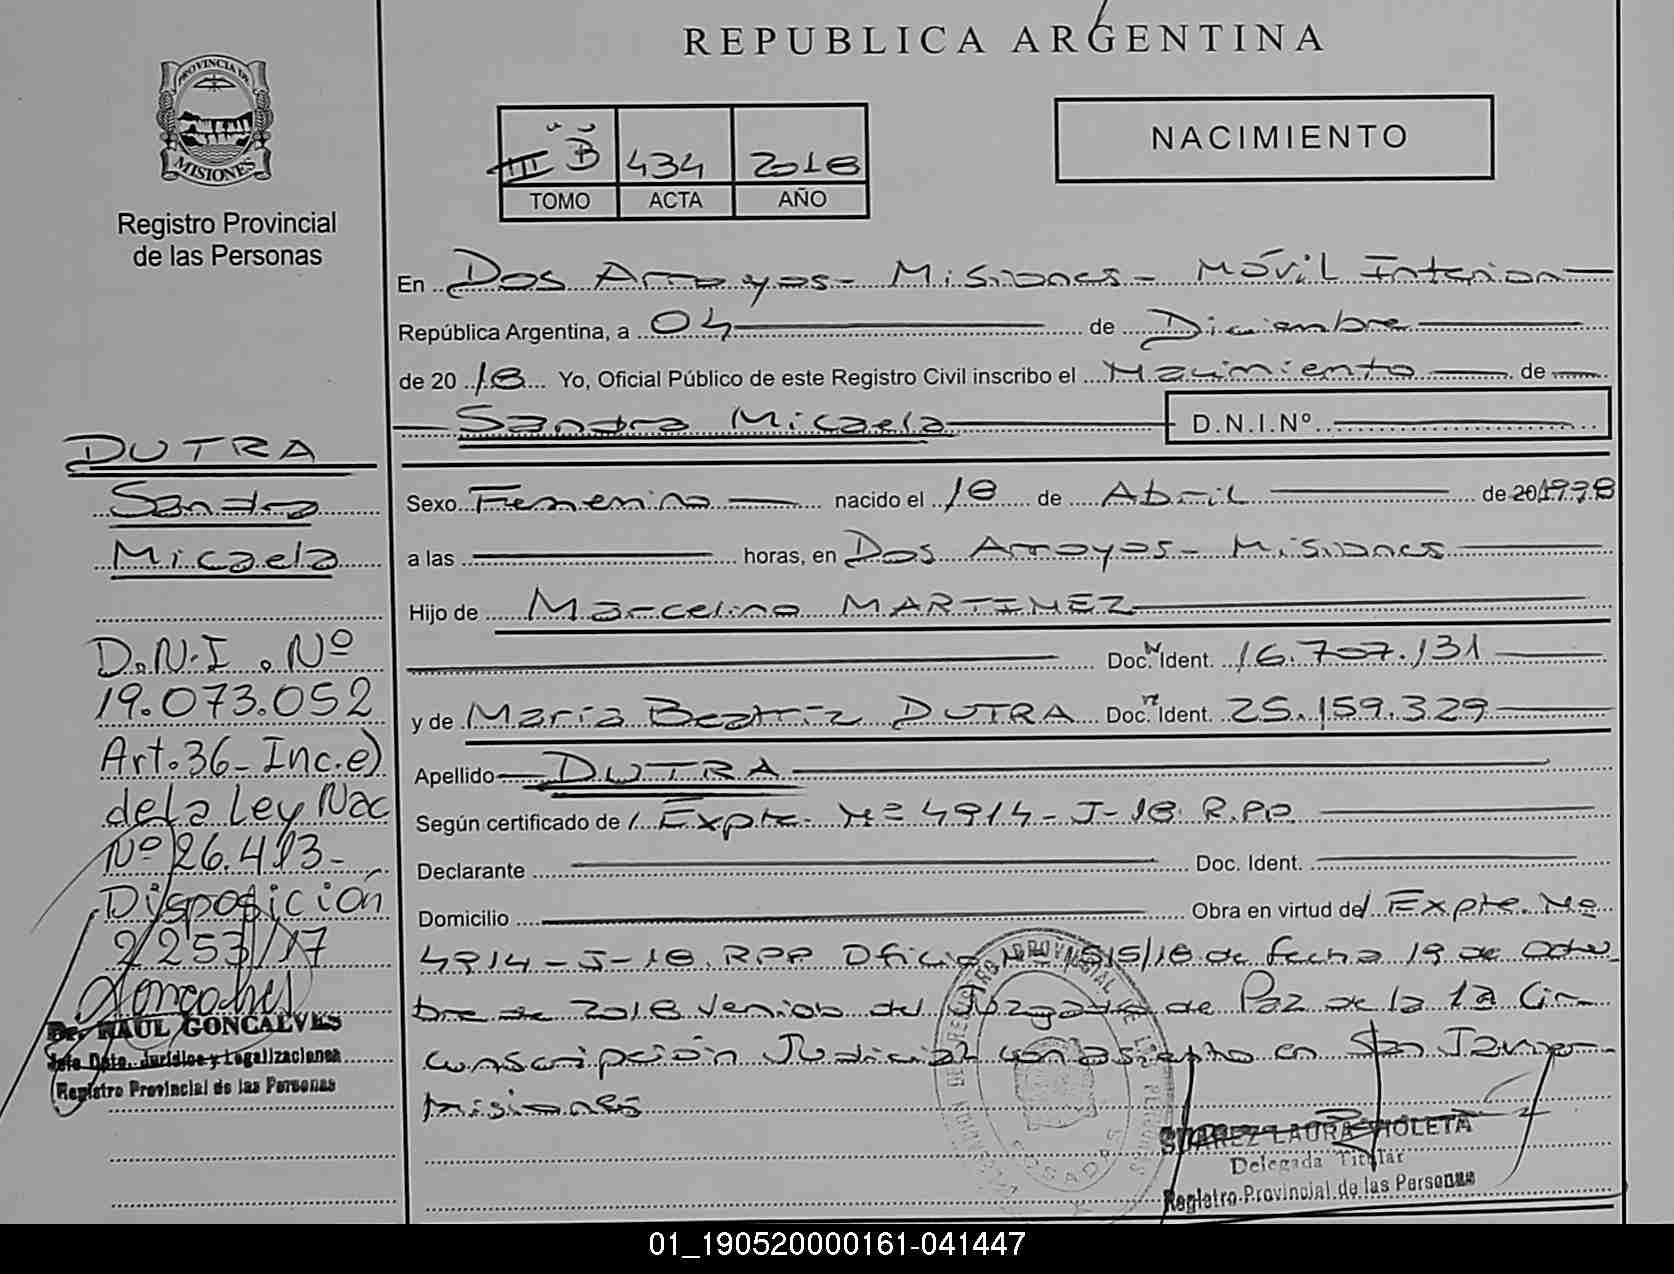 PROVINCIA DE
MISIONES
Registro Provincial
de las Personas
REPUBLICA ARGENTINA
III B 434 2018
TOMO ACTA AÑO
NACIMIENTO
En Dos Arroyos - Misiones - Móvil Interior
República Argentina, a 04 de Diciembre
de 2018 Yo, Oficial Público de este Registro Civil inscribo el Nacimiento de
Sandra Micaela D.N.I.Nº
Sexo Femenino nacido el 18 de Abril de 201998
a las horas, en Dos Arroyos - Misiones
Hijo de Marcelino MARTINEZ
Doc. Ident. 16.707.131
y de María Beatriz DUTRA Doc. Ident. 25.159.329
Apellido DUTRA
Según certificado de / Expte. Nº 4914-J-18. R.PP.
Declarante Doc. Ident.
Domicilio Obra en virtud de / Expte. Nº
4914-J-18. RPP Oficio Nº 1515/18 de fecha 19 de Octu
bre de 2018 venido del Juzgado de Paz de la 1ª Cir
cunscripción Judicial con asiento en San Javier
Misiones
SUAREZ LAURA VIOLETA
Delegada Titular
Registro Provincial de las Personas
DUTRA
Sandra
Micaela
D.N.I. Nº
19.073.052
Art. 36 - Inc. e)
de la Ley Nac
Nº 26.413 -
Disposición
2253/17
Dr. RAUL GONCALVES
Jefe Dpto. Jurídico y Legalizaciones
Registro Provincial de las Personas
01_190520000161-041447